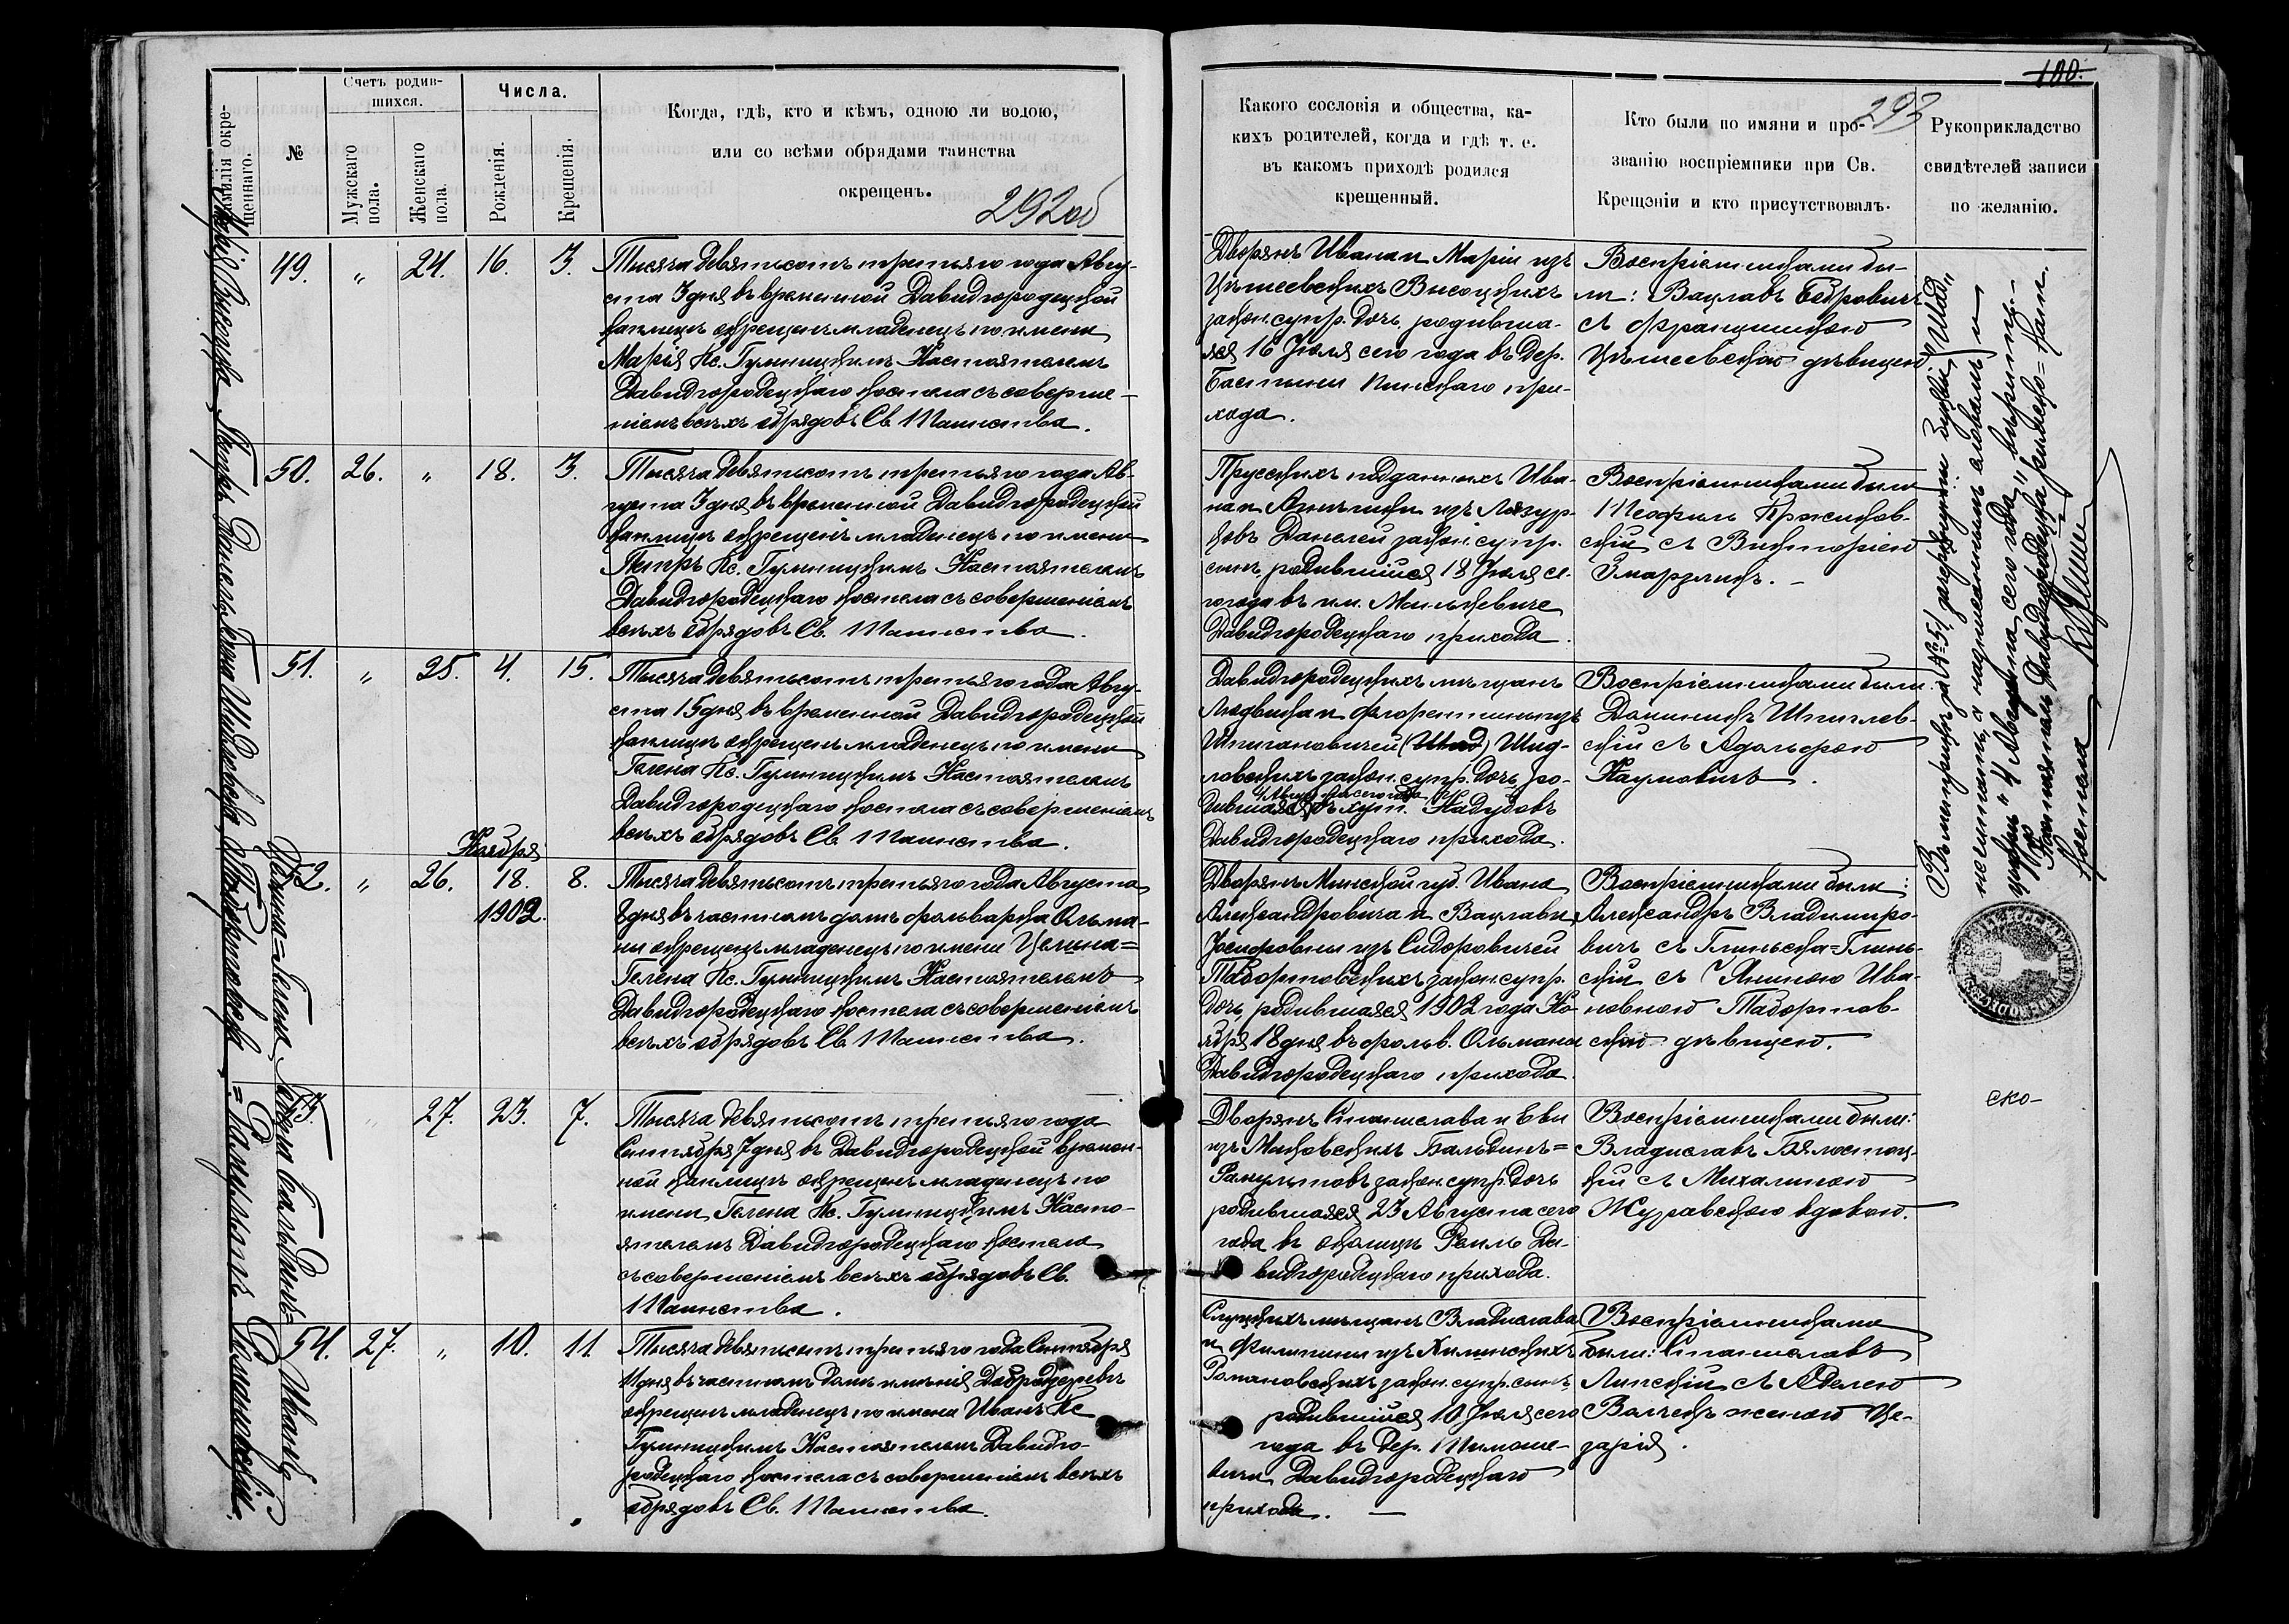 100.
293
292об
Фамилія окрещеннаго.
№
Счетъ родившихся.
Мужскаго пола.
Женскаго пола.
Числа.
Рожденія.
Крещенія.
Когда, гдѣ, кто и кѣмъ, одною ли водою,
или со всѣми обрядами таинства
окрещенъ.
Какого сословія и общества, ка-
кихъ родителей, когда и гдѣ т. е.
въ какомъ приходѣ родился
крещенный.
Кто были по имяни и про-
званію воспріемники при Св.
Крещэніи и кто присутствовалъ.
Рукоприкладство
свидѣтелей записи
по желанію.
Марія Высоцка
49. " 24. 16. 3.
Тысяча девятьсотъ третьяго года Авгу-
ста 3 дня въ временной Давидгородецкой
каплицѣ окрещенъ младенецъ по имени
Марія Кс. Гумницкимъ Настоятелемъ
Давидгородецкаго костела съ соверше-
ніемъ всѣхъ обрядовъ Св. Таинства.
Дворянъ Ивана и Маріи изъ
Цѣшевскихъ Высоцкихъ
закон. супр. дочь, родивша-
яся 16 Іюля сего года въ дер.
Пинскаго при-
хода.
Воспріемниками бы-
ли: Вацлавъ Бедровичъ
съ Францишкою
Цѣшевскою дѣвицею
Петръ Данель
50. 26. " 18. 3.
Тысяча девятьсотъ третьяго года Ав-
густа 3 дня въ временной Давидгородецкой
каплицѣ окрещенъ младенецъ по имени
Петръ Кс. Гумницкимъ Настоятелемъ
Давидгородецкаго костела съ совершеніемъ
всѣхъ обрядовъ Св. Таинства.
Прусскихъ подданныхъ Ива-
на и Ангелики изъ Лязур-
ковъ Данелей закон. супр.
сынъ, родившійся 18 Іюля се-
го года въ им. Манькевиче
Давидгородецкаго прихода.
Воспріемниками были
Теофиль
съ Викторіею
Гелена Шидловска
51. " 25. 4. 15.
Тысяча девятьсотъ третьяго года Авгу-
ста 15 дня въ временной Давидгородецкой
каплицѣ окрещенъ младенецъ по имени
Гелена Кс. Гумницкимъ Настоятелемъ
Давидгородецкаго костела съ совершеніемъ
всѣхъ обрядовъ Св. Таинства.
Давидгородецкихъ мѣщанъ
Людвика и Флорентины изъ
(Шад) Шид-
ловскихъ закон. супр. дочь, ро-
4 Августа сего года
дившаяся въ хут. Надубовъ
Давидгородецкаго прихода.
Воспріемниками были
Доминикъ Шпилев-
скій съ Адольфою
Наумовичъ.
Целина-Гелена Табортовска
52. " 26. Ноября 18. 1902. 8.
Тысяча девятьсотъ третьяго года Августа
8 дня въ частномъ домѣ фольварка Ольма-
ни окрещенъ младенецъ по имени Целина=
Гелена Кс. Гумницкимъ Настоятелемъ
Давидгородецкаго костела съ совершеніемъ
всѣхъ обрядовъ Св. Таинства.
Дворянъ Минской губ. Ивана
Александровича и Вацлавы
Іосифовны изъ Сидоровичей
Табортовскихъ закон. супр.
дочь, родившаяся 1902 года Но-
ября 18 дня въ фольв. Ольмани
Давидгородецкаго прихода.
Воспріемниками были:
Александръ Владимиро-
вичъ съ Глинска=Глин-
скій съ Яниною Ива-
новною Табортов-
скою дѣвицею.
Гелена Бальвинъ=Рамультъ
53. " 27. 23. 7.
Тысяча девятьсотъ третьяго года
Сентября 7 дня въ Давидгородецкой времен-
ной каплицѣ окрещенъ младенецъ по
имени Гелена Кс. Гумницкимъ Насто-
ятелемъ Давидгородецкаго костела
съ совершеніемъ всѣхъ обрядовъ Св.
Таинства.
Дворянъ Станислава и Евы
изъ Бальвинъ=
Рамультовъ закон. супр. дочь
родившаяся 23 Августа сего
года въ околицѣ Да-
видгородецкаго прихода.
Воспріемниками были:
Владиславъ Бялостоц-
кій съ Михалиною
Журавскою вдовою.
Иванъ Романовскій
54. 27. " 10. 11.
Тысяча девятьсотъ третьяго года Сентября
11 дня въ частномъ домѣ имѣнія
окрещенъ младенецъ по имени Иванъ Кс.
Гумницкимъ Настоятелемъ Давидго-
родецкаго костела съ совершеніемъ всѣхъ
обрядовъ Св. Таинства.
Слуцкихъ мѣщанъ Владислава
и Филипины изъ
Романовскихъ закон. супр. сынъ
родившійся 10 Іюля сего
года въ дер. Тимоше-
вичи Давидгородецкаго
прихода.
Воспріемниками
были: Станиславъ
Липскій съ Аделею
женою Це-
зарія.
Въ метрикѣ за № 51, зачеркнутыя буквы "Шад"
не считать, а надписаннымъ словамъ
"4 Августа сего года" вѣрить.
Настоятель Давидгородецка римско=кат.
костела
ско-